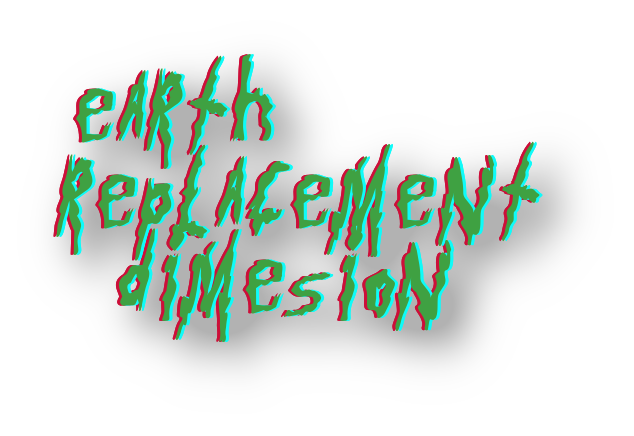 eARth
RepLACeMeNt
diMesioN